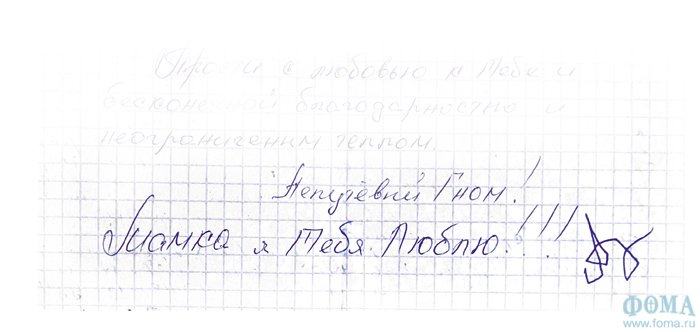 Прости с любовью к Тебе и
бесконечной благодарностью и
неограниченим теплом.
Непутёвий Гном!
Мамка я Тебя Люблю!!!
ФОМА
www.foma.ru